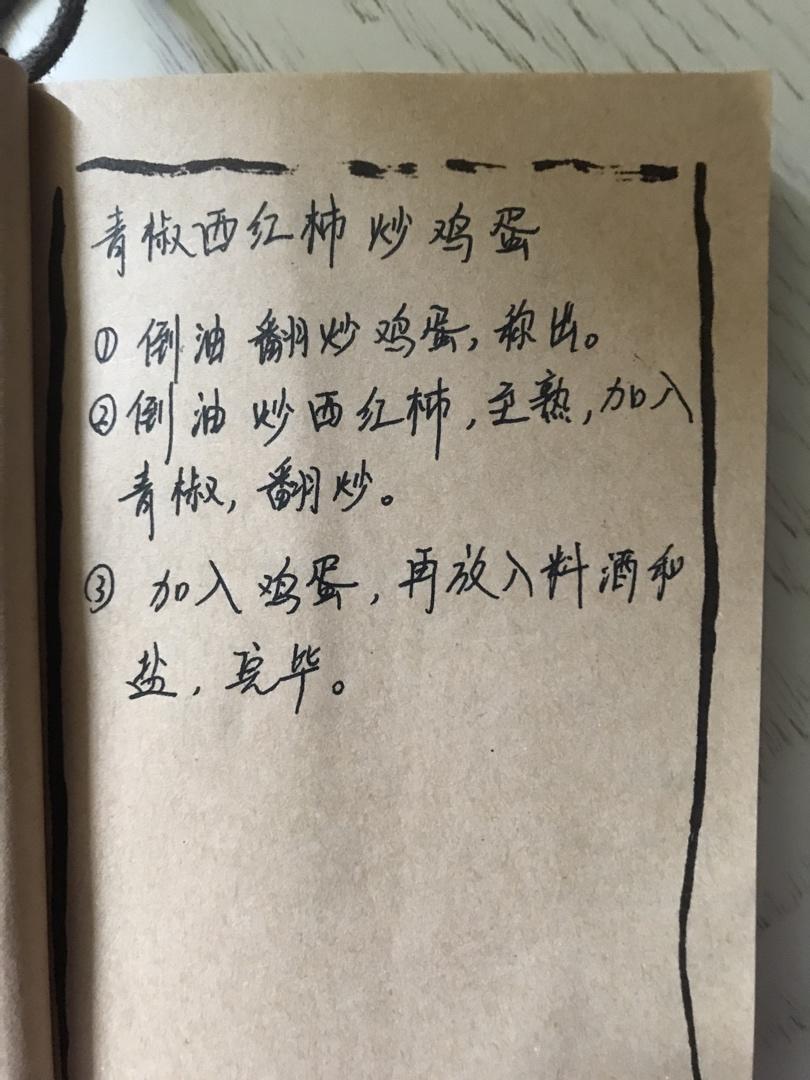 青椒西红柿炒鸡蛋
①倒油翻炒鸡蛋,称出。
②倒油炒西红柿,至熟,加入
青椒,翻炒。
③加入鸡蛋,再放入料酒和
盐,完毕。